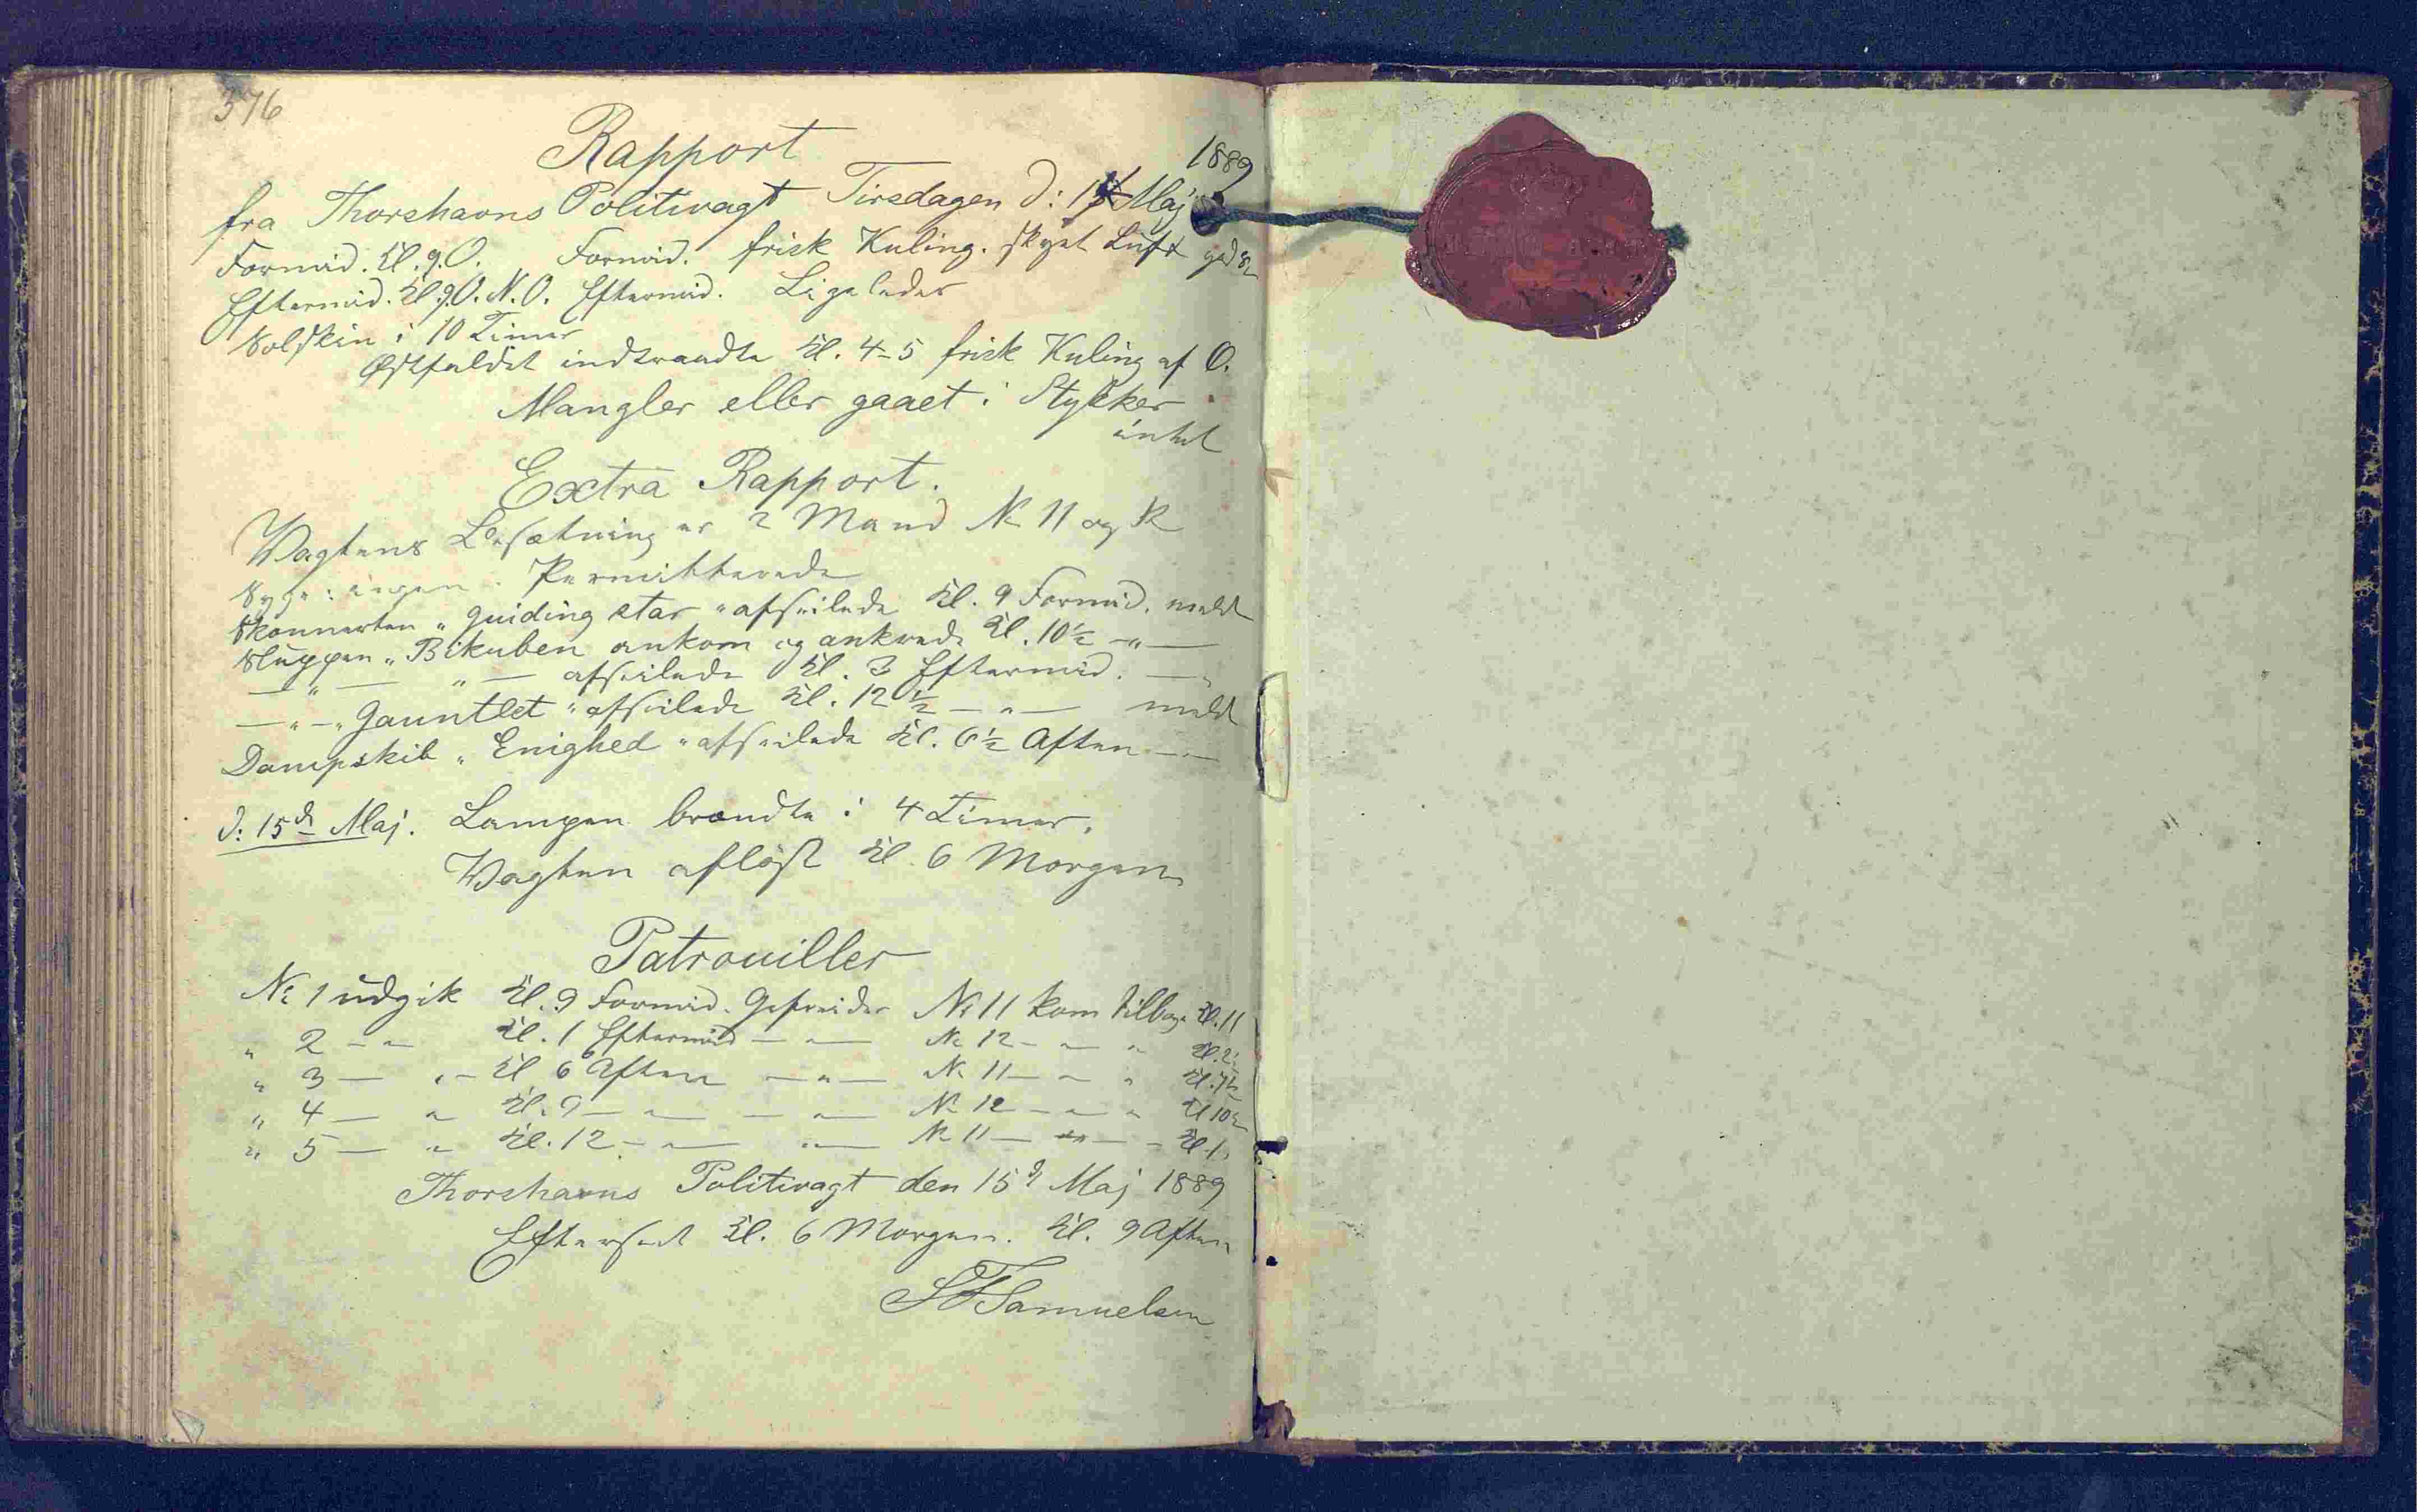 376
Rapport
1889
fra Thorshavns Politivagt Tirsdagen d: 14 Maj
Formid. Kl. 9. O. Formid. frisk Kuling. skyet Luft
Eftermid. Kl. 9. O. N. O. Eftermid. Ligeledes
Solskin i 10 Timer
Østfaldet indtraadte Kl. 4-5 frisk Kuling af O.
Mangler eller gaaet i Stykker
intet
Extra Rapport.
Vagtens Besætning er 2 Mand No 11 og 12
Syge: ingen. Permitterede
Skonnerten "guiding star" afseilede Kl. 9 Formid. meldt
Sluppen "Bikuben ankom og ankrede Kl. 10½ —"—
—"— "— afseilede Kl. 3 Eftermid. —"
—"— "Gauntlet" afseilede Kl. 12½ —"— meldt
Dampskib "Enighed" afseilede Kl. 6½ Aften —"—
d: 15de Maj. Lampen brændte i 4 Timer.
Vagten afløst Kl. 6 Morgen
Patrouiller
No 1 udgik Kl. 9 Formid. Gefreider No 11 kom tilbage Kl. 11
" 2 —"— Kl. 1 Eftermid —"— No 12 —"— " Kl. 2
" 3 — "— Kl 6 Aften —"— No 11 —"— " Kl. 7½
" 4 — " Kl. 9 —"— —"— No 12 —"— " Kl 10½
" 5 — " Kl. 12 —"— "— No 11 —"— — Kl. 1
Thorshavns Politivagt den 15d Maj 1889
Efterseet Kl. 6 Morgen. Kl. 9 Aften
Samuelsen